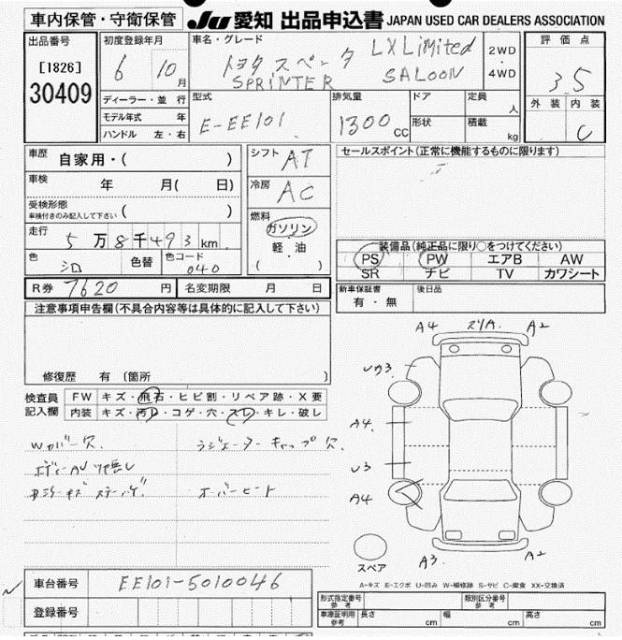 車内保管・守衛保管 Ju 愛知 出品申込書 JAPAN USED CAR DEALERS ASSOCIATION
出品番号 初度登録年月 車名・グレード 評価点
[1826] 6年 10月 トヨタ スペータ LX Limited 2WD・4WD 3.5
30409 SPRINTER SALOON
ディーラー・並行 型式 排気量 ドア 定員 人 外装 内装
モデル年式 年 E-EE101 1300CC 形状 積載 kg C
ハンドル 左・右
車歴 自家用・( ) シフト AT セールスポイント(正常に機能するものに限ります)
車検 年 月( 日) 冷房 AC
受検形態
車検付きのみ記入して下さい ( ) 燃料
走行 5万8千493km ガソリン 装備品(純正品に限り○をつけてください)
色 シロ 色替 色コード 040 軽・油 PS PW エアB AW
( ) SR ナビ TV カワシート
R券 7620円 名変期限 月 日 新車保証書 有・無 後日品
注意事項申告欄(不具合内容等は具体的に記入して下さい)
修復歴 有 (箇所
検査員 FW キズ・飛石・ヒビ割・リペア跡・X要
記入欄 内装 キズ・汚れ・コゲ・穴・スレ・キレ・破し
Wカバー欠. ラジエーターキャップ欠
オーバーヒート
A4 スリA. A2
U3
A4.
U3
A4
A3 A2
スペア
A-キズ E-エクボ U-凹み W-補修跡 S-サビ C-腐食 XX-交換済
車台番号 EE101-5010046
登録番号
形式指定番号 参考 類別区分番号 参考
車庫証明用 参考 長さ cm 幅 cm 高さ cm